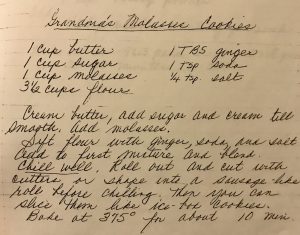 Grandma's Molasses Cookies
1 cup butter 1 TBS ginger
1 cup sugar 1 tsp soda
1 cup molasses ¼ tsp salt
3½ cups flour
Cream butter, add sugar and cream till
smooth. Add molasses.
Sift flour with ginger, soda, and salt
add to first mixture and blend.
Chill well. Roll out and cut with
cutters or shape into a sausage-like
roll before chilling. Then you can
slice them like ice-box cookies.
Bake at 375° for about 10 min.